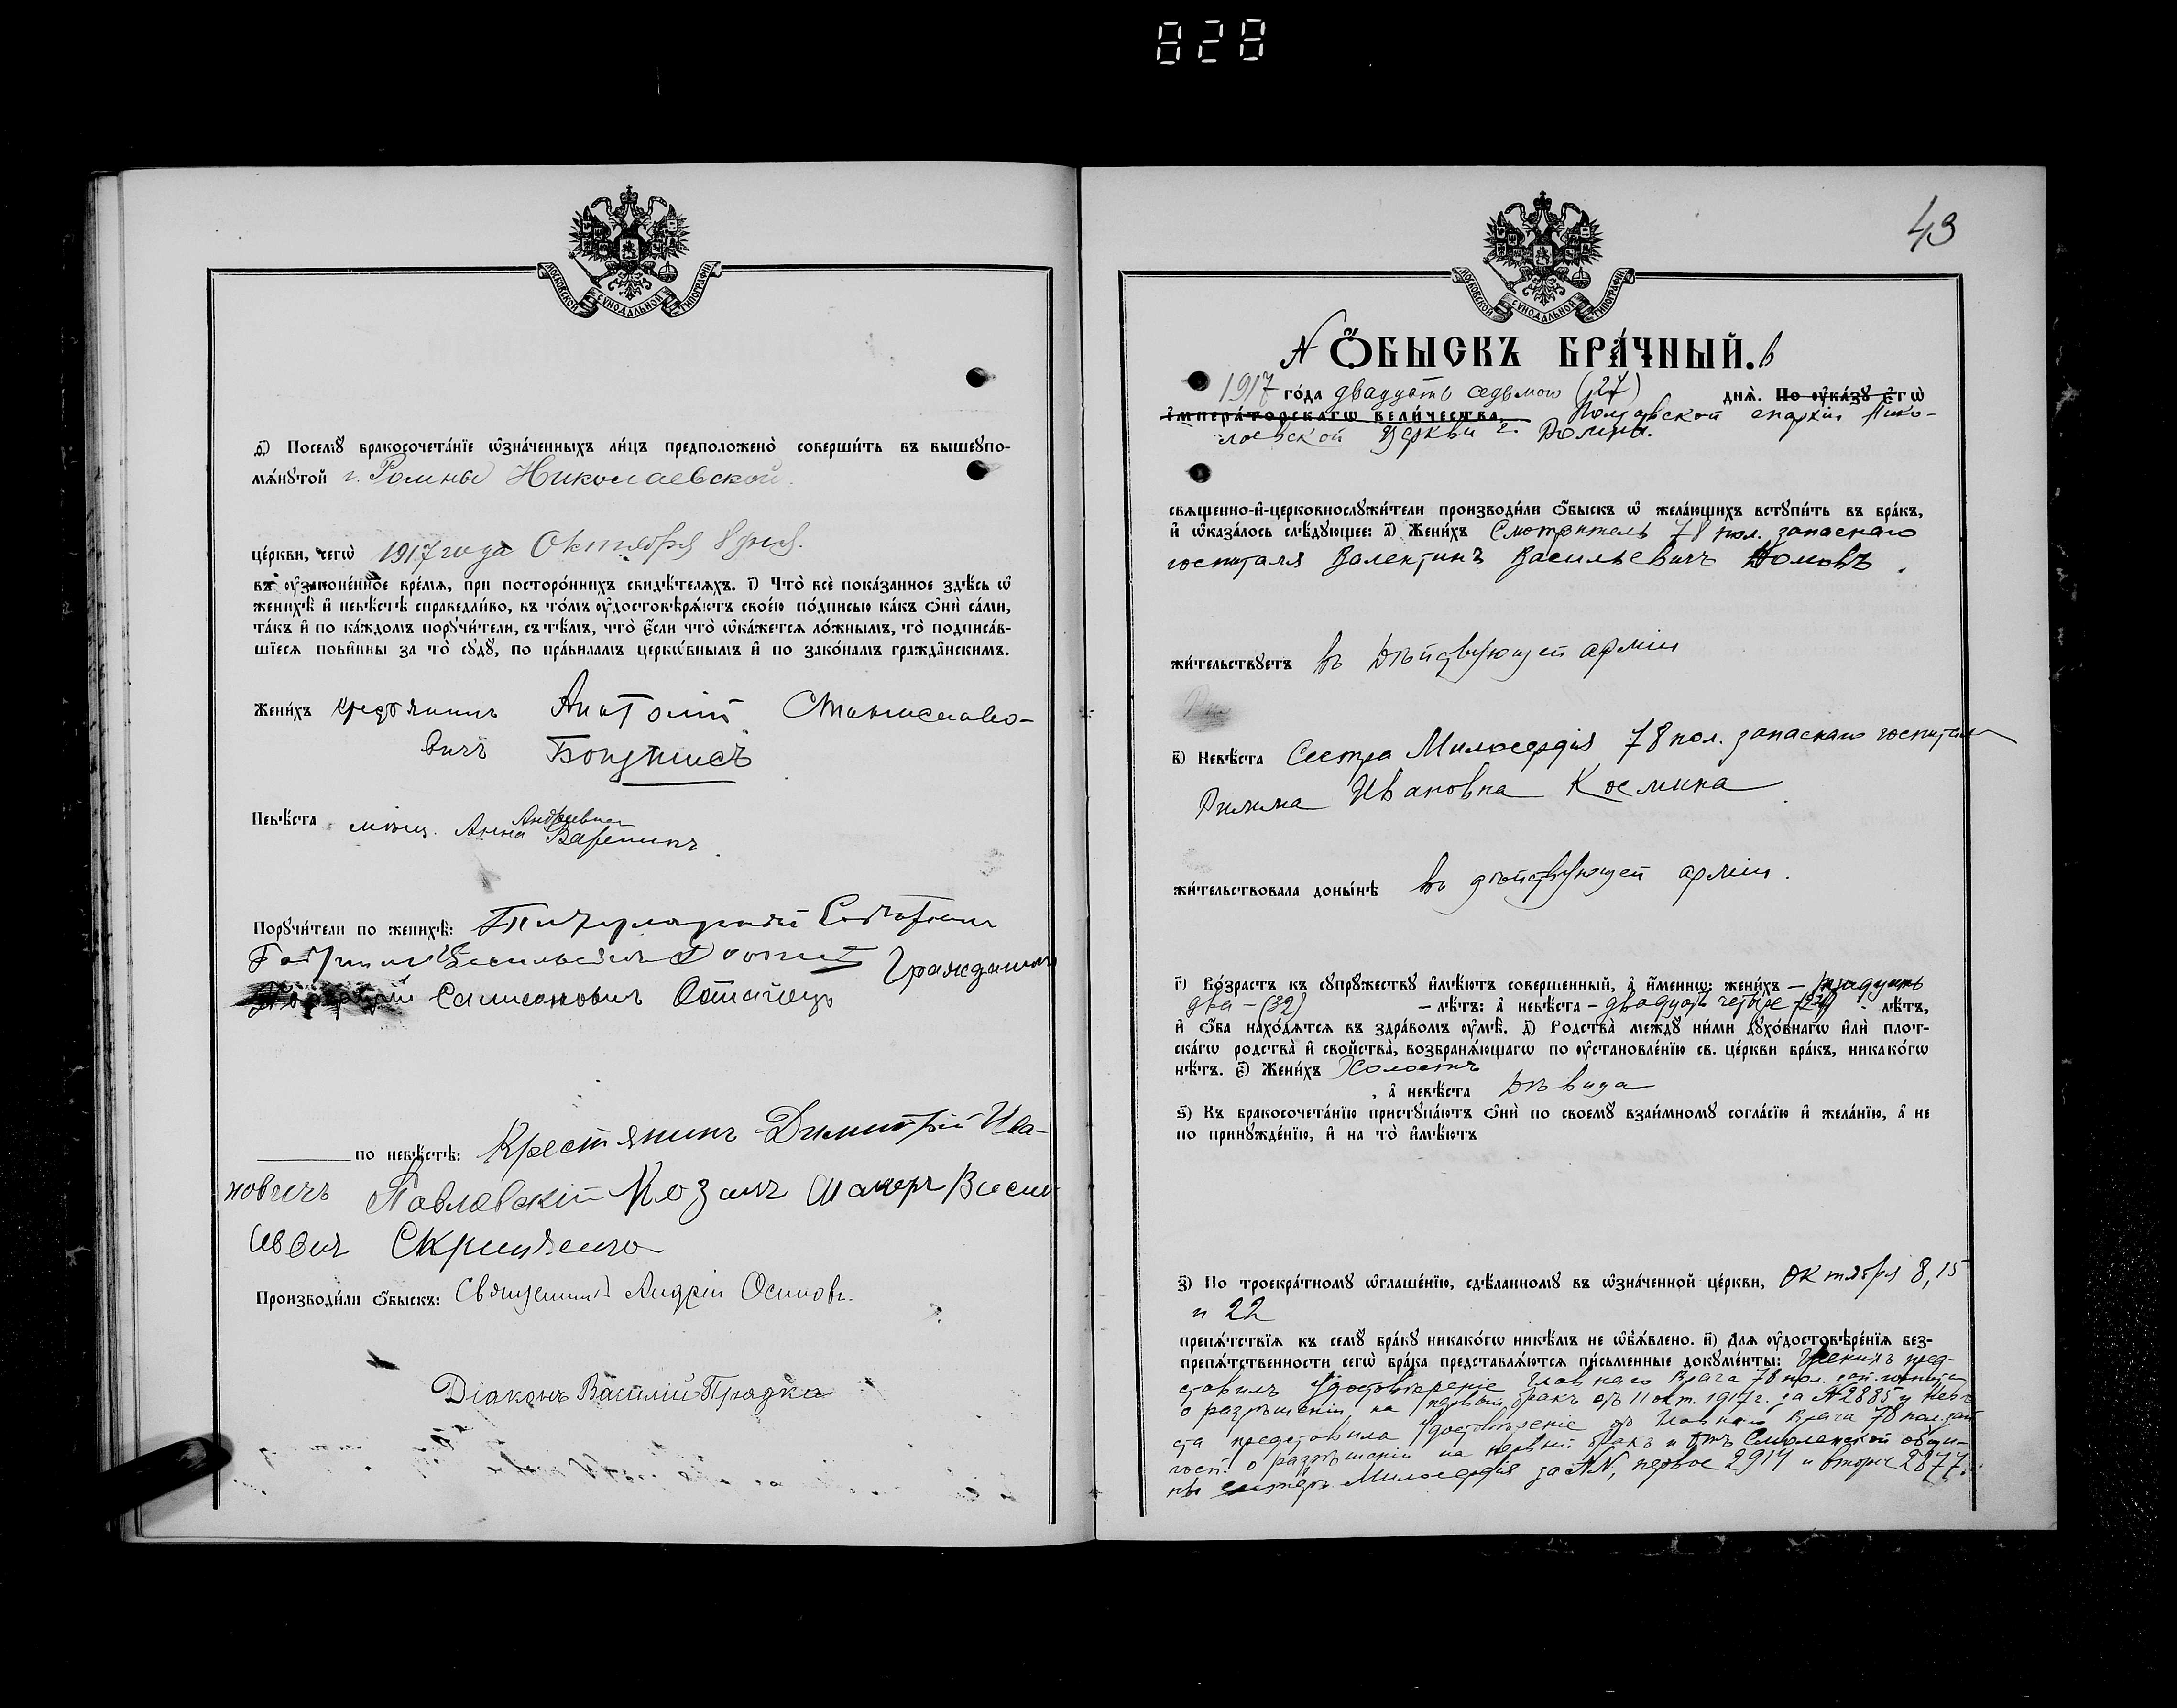 828
МОСКОВСКОЙ СѴНОДАЛЬНОЙ ТИПОГРАФІИ
д҃) Посемꙋ̀ бракосочета́нїе ѡ҆зна́ченныхъ ли́цъ предположено̀ соверши́ть въ вышеꙋпо-
мѧ́нꙋтой г. Ромны Николаевской
це́ркви, чегѡ̀ 1917 года Октября 8 дня.
въ ᲂу҆зако́ненное вре́мѧ, при посторо́ннихъ свидѣ́телѧхъ. і҃) Что̀ всѐ пока́занное здѣ́сь ѡ҆
женихѣ̀ и҆ невѣ́стѣ справедли́во, въ то́мъ ᲂу҆достовѣрѧ́ютъ свое́ю по́дписью ка́къ ѻ҆нѝ са́ми,
та́къ и҆ по ка́ждомъ порꙋчи́тели, съ тѣ́мъ, что̀ є҆́сли что̀ ѡ҆ка́жетсѧ ло́жнымъ, то̀ подписа́в-
шїесѧ пови́нны за то̀ сꙋдꙋ̀, по пра́виламъ церкѡ́внымъ и҆ по зако́намъ гражда́нскимъ.
Жени́хъ крестянинъ Анатолій Станиславо-
вичъ
Невѣ́ста мѣщ. Анна Андреевна
Порꙋчи́тели по женихѣ̀: Титулярный Советник
Гражданинъ
Самсонович Остапецъ
по невѣ́стѣ: Крестянинъ Димитрій Ива-
новичъ Павловскій Козакъ
Скрипченко
Производи́ли ѻ҆́быскъ: Священникъ Андрей Осиповъ.
Діаконъ Василій Прядка
43
МОСКОВСКОЙ СѴНОДАЛЬНОЙ ТИПОГРАФІИ
N Ѻ҆́БЫСКЪ БРА́ЧНЫЙ. в
1917 го́да двадцать седьмого (27) днѧ̀. По ᲂу҆ка́зꙋ Є҆гѡ̀
І҆мпера́торскагѡ вели́чества, Полтавской епархіи Нико-
лаевской церкви г. Ромны.
свѧщенно-и҆-церковнослꙋжи́тели производи́ли ѻ҆́быскъ ѡ҆ жела́ющихъ встꙋпи́ть въ бра́къ,
и҆ ѡ҆каза́лось слѣ́дꙋющее: а҃) Жени́хъ Смотритель 78 пол. запаснаго
госпиталя Валентинъ Васильевичъ Домовъ.
жи́тельствꙋетъ въ Дѣйствующей арміи
в҃) Невѣ́ста Сестра Милосердія 78 пол. запаснаго госпиталя
Римма Ивановна Космина
жи́тельствовала доны́нѣ въ дѣйствующей арміи.
г҃) Во́зрастъ къ сꙋпрꙋ́жествꙋ и҆мѣ́ютъ соверше́нный, а҆ и҆́меннѡ: жени́хъ — тридцать
два — (32) — лѣ́тъ: а҆ невѣ́ста — двадцать четыре (24) — лѣ́тъ,
и҆ ѻ҆́ба нахо́дѧтсѧ въ здра́вомъ ᲂу҆мѣ̀. д҃) Родства̀ междꙋ̀ ни́ми дꙋхо́внагѡ и҆лѝ плот-
ска́гѡ родства̀ и҆ сво́йства̀, возбранѧ́ющагѡ по ᲂу҆становле́нїю св. це́ркви бра́къ, никако́гѡ
нѣ́тъ. є҃) Жени́хъ Холостъ
, а҆ невѣ́ста Дѣвица
ѕ҃) Къ бракосочета́нїю пристꙋпа́ютъ ѻ҆нѝ по своемꙋ̀ взаи́мномꙋ согла́сїю и҆ жела́нїю, а҆ не
по принꙋжде́нїю, и҆ на то̀ и҆мѣ́ютъ
з҃) По троекра́тномꙋ ѡ҆глаше́нїю, сдѣ́ланномꙋ въ ѡ҆зна́ченной це́ркви, Октября 8, 15
и 22
препѧ́тствїѧ къ семꙋ̀ бра́кꙋ никако́гѡ никѣ́мъ не ѡ҆б̾ѧ́влено. и҃) Длѧ ᲂу҆достовѣре́нїѧ без-
препѧ́тственности сегѡ̀ бра́ка представлѧ́ютсѧ пи́сьменные докꙋме́нты: Женихъ пред-
ставилъ Удостоверение главнаго врача 78 пол. зап. госпит.
о разрѣшеніи на первый бракъ отъ 11 окт. 1917 г. за № 2885 и невѣ-
ста представила удостовѣреніе отъ Главнаго Врача 78 пол. зап
госп. о разрѣшеніи на первый бракъ и отъ Смоленской общи-
ны сестеръ Милосердія за №№, первое 2914 и второе 2877.